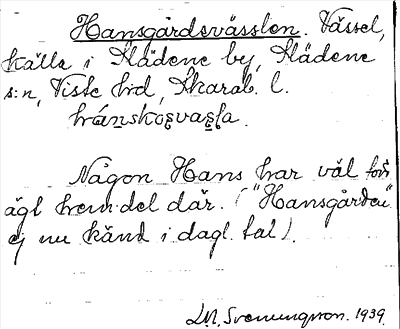 Hansgårdsvässlen. Vässel,
källa i Klädene by, Klädene
s:n, Viste hd, Skarab. l.
Någon Hans har väl för
ägt hem.del där. ("Hansgården"
ej nu känd i dagl. tal).
Svenungsson. 1939.